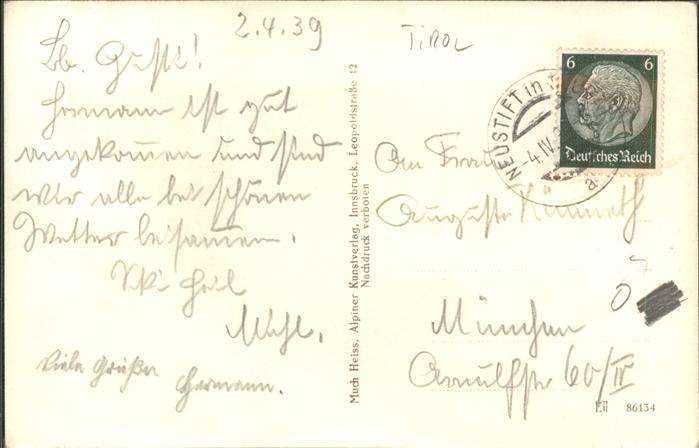 2.4.39
Lb. Gusti!
Hermann ist gut
angekommen und sind
wir alle bei schönen
Wetter beisammen.
Ski Heil
Viele Grüße
Hermann.
Much Heiss, Alpiner Kunstverlag, Innsbruck, Leopoldstraße 12
Nachdruck verboten
TIROL
6 6
Deutsches Reich
NEUSTIFT in
-4.IV.
a
An Frau
Auguste
München
Arnulfstr 60/IV
86134